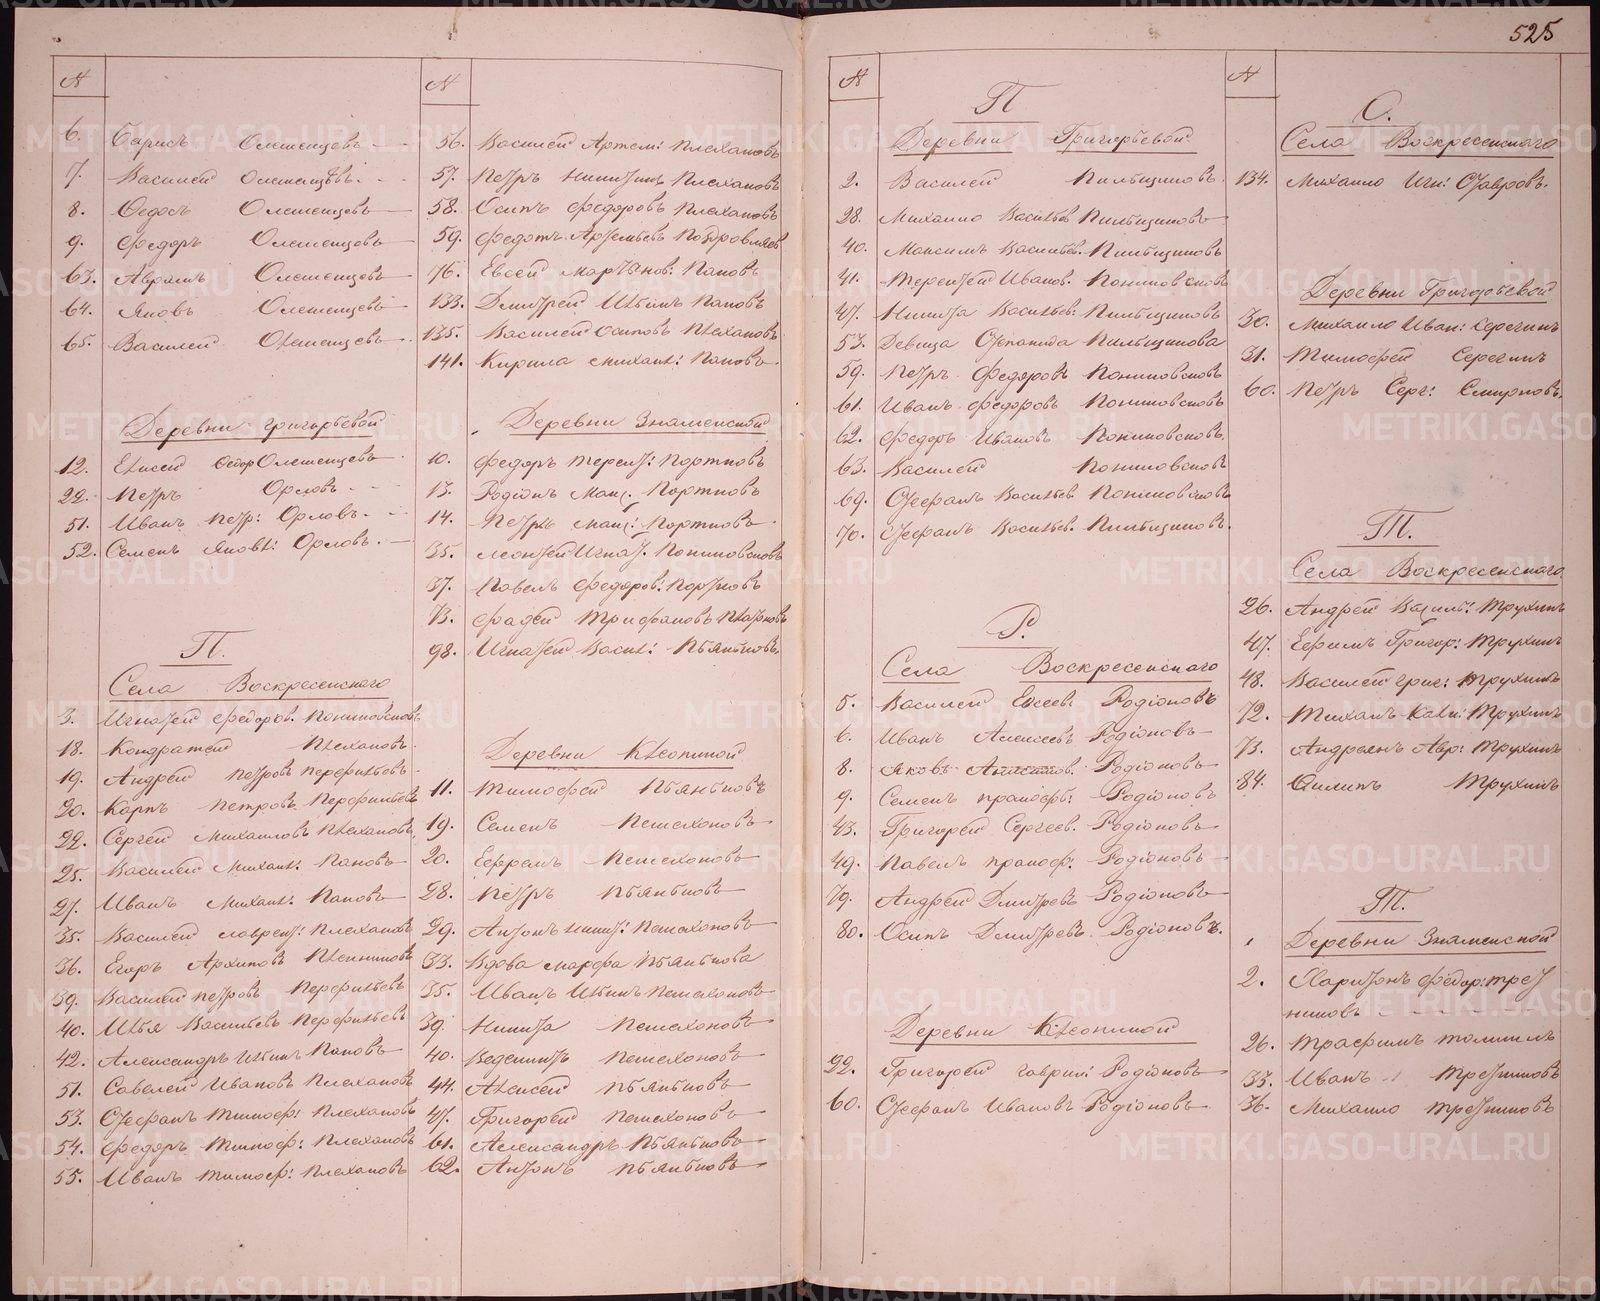 525
N
6. Борисъ Олешенцевъ
7. Василей Олешенцевъ
8. Ѳедосъ Олешенцевъ
9. Федоръ Олешенцевъ
63. Аврамъ Олешенцевъ
64. Яковъ Олешенцевъ
65. Василей Олешенцевъ
Деревни Григорьевой
12. Елисей Ѳедор Олешенцевъ
22. Петръ Орловъ
51. Иванъ Петр: Орловъ
52. Семенъ Яковл: Орловъ
П.
Села Воскресенскаго
3. Игнатей Федоров. Пониповсковъ
18. Кондратей Плехановъ
19. Андрей Петровъ Перфильевъ
20. Карпъ Петровъ Перфильевъ
22. Сергей Михаиловъ Плехановъ
25. Василей Михаил: Паповъ
27. Иванъ Михаил: Паповъ
35. Василей Лаврент: Плехановъ
36. Егоръ Архиповъ
39. Василей Петровъ Перфильевъ
40. Илья Васильевъ Перфильевъ
42. Александръ Ильинъ Паповъ
51. Савелей Ивановъ Плехановъ
53. Стефанъ Тимоф: Плехановъ
54. Федоръ Тимоф: Плехановъ
55. Иванъ Тимоф: Плехановъ
N
56. Василей Артем: Плехановъ
57. Петръ Никитинъ Плехановъ
58. Осипъ Федоровъ Плехановъ
59. Федотъ Артемьевъ Поздровляев
76. Евсей Мартынов: Паповъ
133. Дмитрей Ильинъ Паповъ
135. Василей Осиповъ Плехановъ
141. Кирила Михаил: Паповъ
Деревни Знаменской
10. Федоръ Терент: Портновъ
13. Родіонъ Макс. Портновъ
14. Петръ Макс: Портновъ
35. Леонтей Игнат. Пониповсковъ
37. Павелъ Федоров: Портновъ
73. Фадей Трифановъ
98. Игнатей Васил: Пьянковъ
Деревни Клеопиной
11. Тимофей Пьянковъ
19. Семенъ Пешехоновъ
20. Ефремъ Пешехоновъ
28. Петръ Пьянковъ
29. Антонъ Никит: Пешехоновъ
33. Вдова Марфа Пьянкова
35. Иванъ Ильинъ Пешехоновъ
39. Никита Пешехоновъ
40. Ведениктъ Пешехоновъ
44. Алексей Пьянковъ
47. Григорей Пешехоновъ
61. Александръ Пьянковъ
62. Антонъ Пьянковъ
N
П
Деревни Григорьевой
2. Василей Пильщиковъ
28. Михаило Васильев Пильщиковъ
40. Максимъ Васильев. Пильщиковъ
41. Терентей Иванов. Пониповсковъ
47. Никита Васильев: Пильщиковъ
53. Девица Степанида Пильщикова
59. Петръ Федоровъ Пониповсковъ
61. Иванъ Федоровъ Пониповсковъ
62. Федоръ Ивановъ Пониповсковъ
63. Василей Пониповсковъ
69. Стефанъ Васильев Пониповсковъ
70. Стефанъ Васильев. Пильщиковъ
Р.
Села Воскресенскаго
5. Василей Евсеев Родіоновъ
6. Иванъ Алексеевъ Родіоновъ
8. Яковъ Родіоновъ
9. Семенъ Прокоф: Родіоновъ
43. Григорей Сергеев. Родіоновъ
49. Павелъ Прокоф: Родіоновъ
79. Андрей Дмитревъ Родіоновъ
80. Осипъ Дмитревъ Родіоновъ
Деревни Клеопиной
22. Григорей Гаврил: Родіоновъ
60. Стефанъ Ивановъ Родіоновъ
N
С.
Села Воскресенскаго
134. Михаило Игн: Ставровъ
Деревни Григорьевой
30. Михаило Иван: Серегинъ
31. Тимофей Серегинъ
60. Петръ Серг: Смирновъ
Т.
Села Воскресенскаго
26. Андрей Васил: Трухинъ
47. Ефимъ Григор: Трухинъ
48. Василей Григ: Трухинъ
72. Трухинъ
73. Андреянъ Авр: Трухинъ
84. Филипъ Трухинъ
Т.
Деревни Знаменской
2. Харитонъ Федор: Трет
никовъ
26. Трафимъ Томилъ
33. Иванъ Третниковъ
36. Михаило Третниковъ